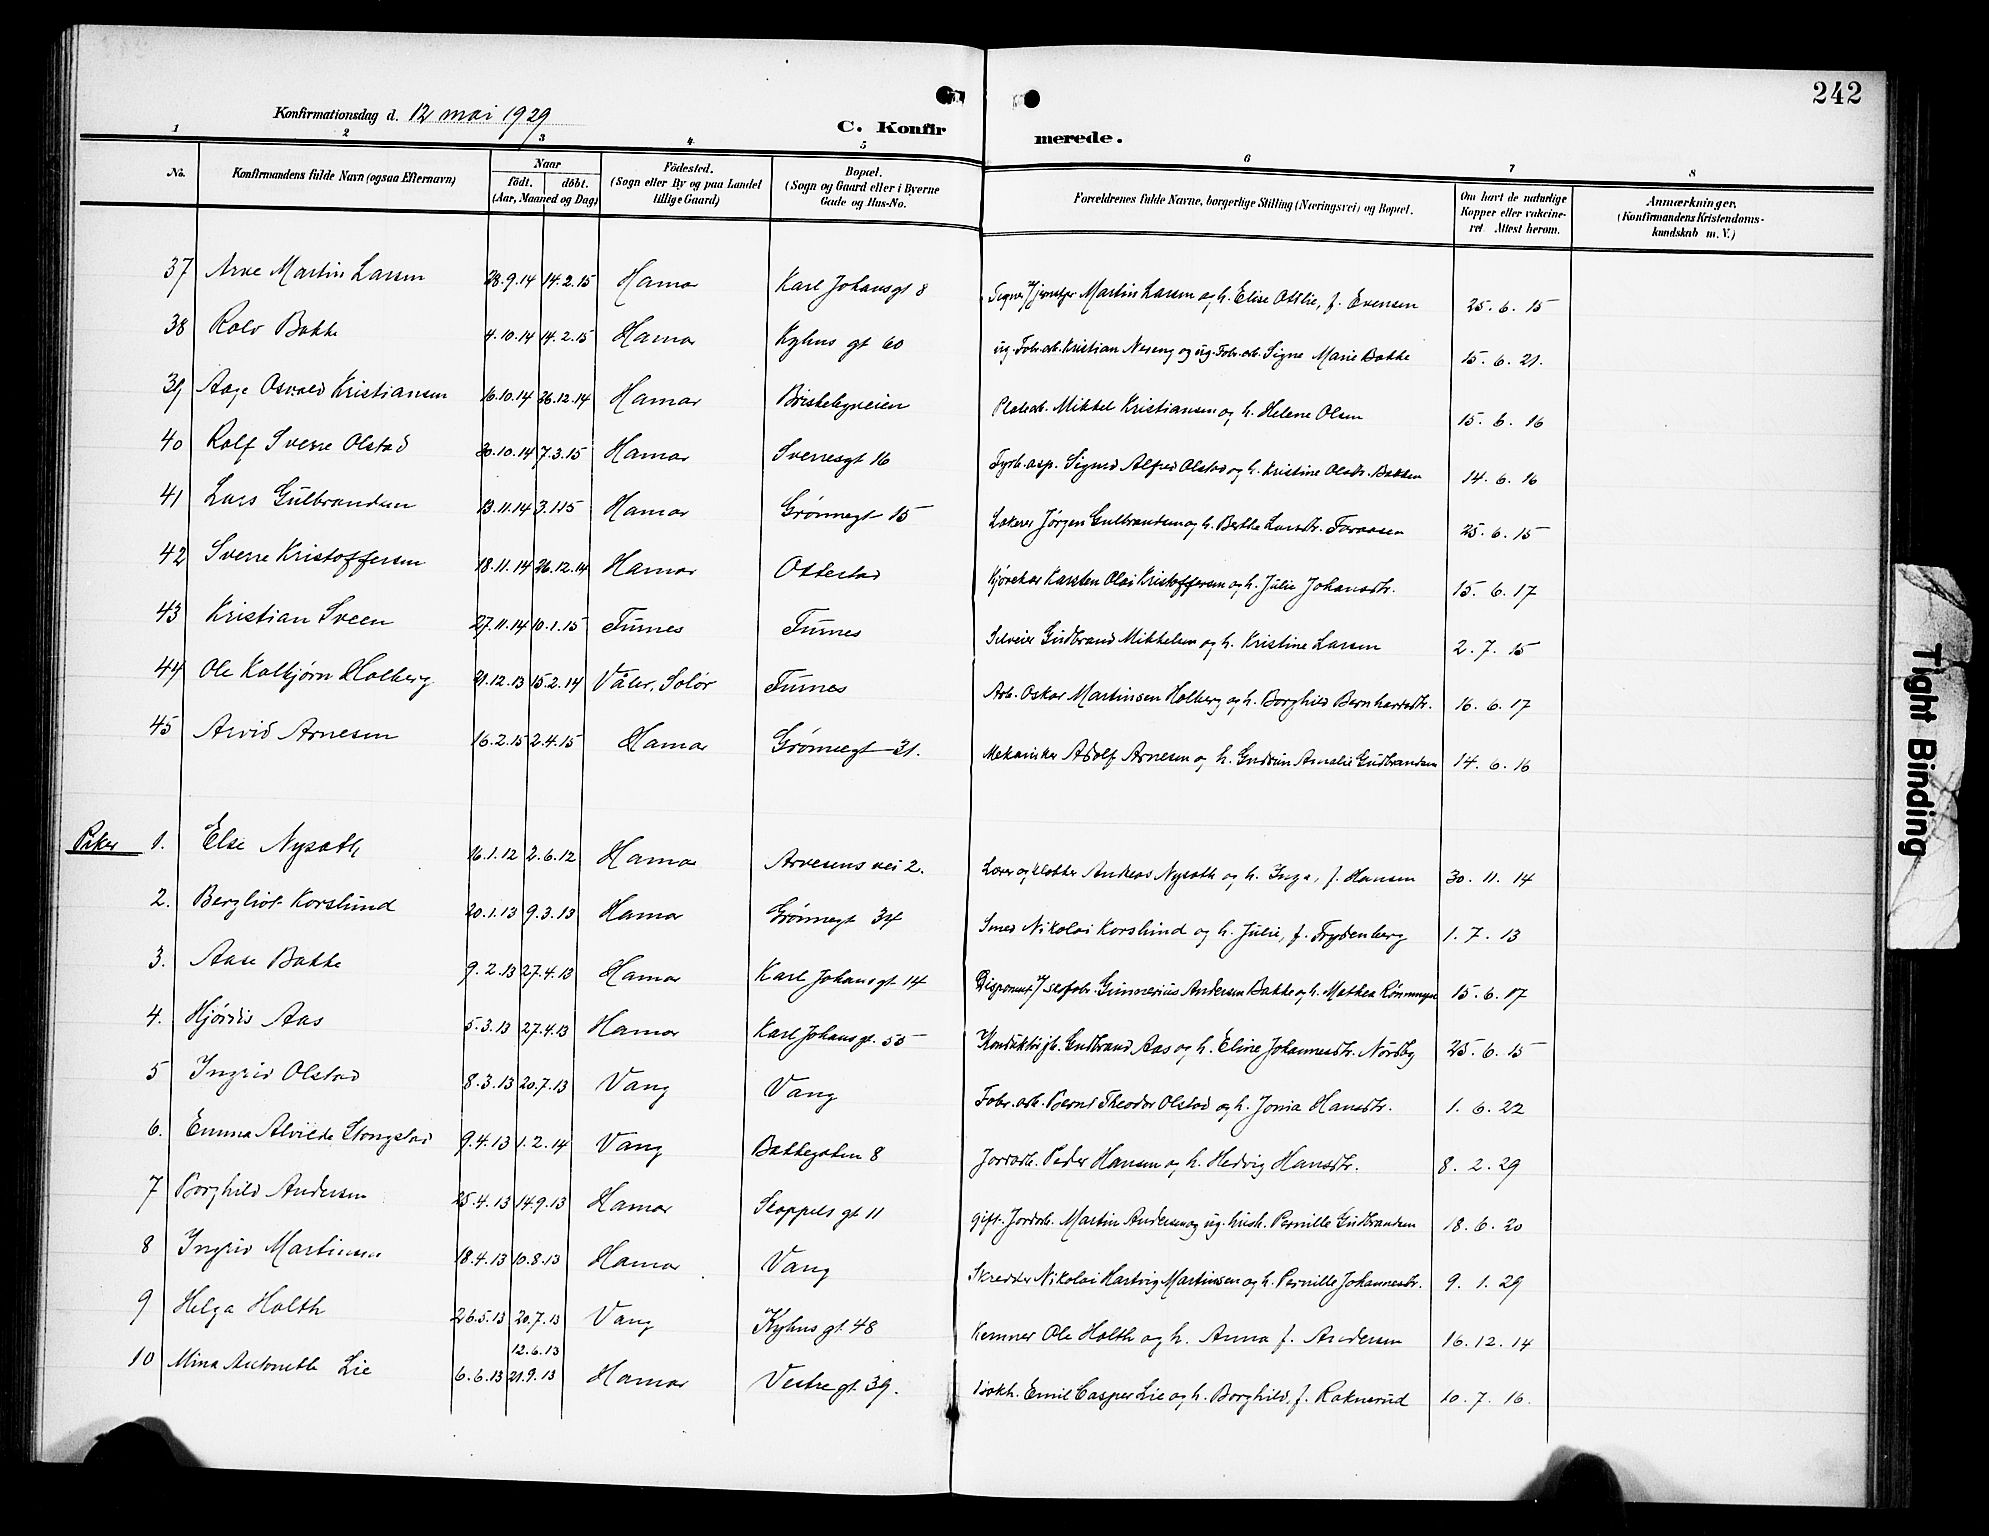 242
Konfirmationsdag d. 12 mai 1929
C. Konfirmerede.
1 2 3 4 5 6 7 8
No. | Konfirmandens fulde Navn (ogsaa Efternavn) | Naar født. døbt. (Aar, Maaned og Dag) | Fødested. (Sogn eller By og paa Landet tillige Gaard) | Bopæl. (Sogn og Gaard eller i Byerne Gade og Hus-No. | Forældrenes fulde Navne, borgerlige Stilling (Næringsvei) og Bopæl. | Om havt de naturlige Kopper eller vakcineret. Attest herom. | Anmærkninger. (Konfirmandens Kristendomskundskab m. V.)
37 Arne Martin Larsen 28.9.14 14.2.15 Hamar Karl Johansgt 8 Martin Larsen og h. Elise Otilie, f. Evensen 25. 6. 15
38 Rolv Bakke 4.10.14 14.2.15 Hamar Kyhns gt 60 ug. Fabr.arb. Kristian Neseng og ug. Fabr.arb. Signe Marie Bakke 15. 6. 21.
39 Aage Osvald Kristiansen 16.10.14 26.12.14 Hamar Briskebyveien Mikkel Kristiansen og h. Helene Olsen 15. 6. 16
40 Rolf Sverre Olstad 30.10.14 7.3.15 Hamar Sverresgt 16 Fyrb.asp. Sigurd Alfred Olstad og h. Kristine Olsdtr. Bakken 14. 6. 16
41 Lars Gulbrandsen 13.11.14 3.1.15 Hamar Grønnegt 15 Jørgen Gulbrandsen og h. Berthe Larsdtr. 25. 6. 15
42 Sverre Kristoffersen 18.11.14 26.12.14 Hamar Ottestad Karsten Olai Kristoffersen og h. Julie Johansdtr. 15. 6. 17
43 Kristian Sveen 27.11.14 10.1.15 Furnes Furnes Selveier Gudbrand Mikkelsen og h. Kristine Larsen 2. 7. 15
44 Ole Kolbjørn Holberg 21.12.13 15.2.14 Våler, Solør Furnes Arb. Oskar Martinsen Holberg og h. Borghild Bernhardsdtr. 16. 6. 17
45 Arvid Arnesen 16.2.15 2.4.15 Hamar Grønnegt 31. Mekaniker Adolf Arnesen og h. Gudrun Amalie Gudbrandsen 14. 6. 16
Piker 1. Else Nysæth 16.1.12 2.6.12 Hamar Arvesens vei 2. Lærer og klokker Andreas Nysæth og h. Inga, f. Hansen 30. 11. 14
2. Bergliot Korslund 20.1.13 9.3.13 Hamar Grønnegt 34 Smed Nikolai Korslund og h. Julie, f. Frydenberg 1. 7. 13
3. Aase Bakke 9.2.13 27.4.13 Hamar Karl Johansgt 14 Disponent Gunnerius Andersen Bakke og h. Mathea 15. 6. 17
4. Hjørdis Aas 5.3.13 27.4.13 Hamar Karl Johansgt. 55 Konduktør Gudbrand Aas og h. Eline Johannesdtr. Nordby 25. 6. 15
5 Ingrid Olstad 8.3.13 20.7.13 Vang Vang Fabr.arb. Bernt Theodor Olstad og h. Hansdtr. 1. 6. 22
6. Emma Alvilde Stongstad 9.4.13 1.2.14 Vang Bakkegaten 8 Jordarb. Peder Hansen og h. Hedvig Hansdtr. 8. 2. 29
7 Borghild Andersen 25.4.13 14.9.13 Hamar Skappels gt 11 gift. Jordarb. Martin Andersen og ug. hush. Pernille Gudbrandsen 18. 6. 20
8 Ingrid Martinsen 18.4.13 10.8.13 Hamar Vang Skredder Nikolai Hartvig Martinsen og h. Pernille Johannesdtr. 9. 1. 29
9 Helga Holth 26.5.13 20.7.13 Vang Kyhns gt. 48 Kemner Ole Holth og h. Anna f. Andersen 16. 12. 14
12.6.13
10 Mina Antonette Lie 6.6.13 21.9.13 Hamar Vestre gt. 39. Bokh. Emil Casper Lie og h. Borghild, f. Raknerud 10. 7. 16.
Tight Binding